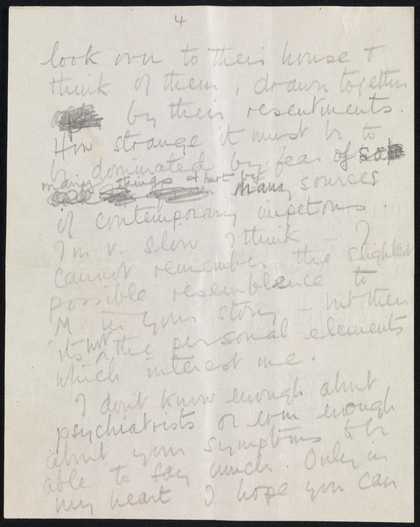 4
look over to their house &
think of them, drawn together
by their resentments.
How strange it must be to
be dominated by fear of so
many things & not by many sources
of contemporary
I'm v. slow I think – I
cannot remember the slightest
possible resemblence to
M in your story – but then
it's not the personal elements
which interest me.
I don't know enough about
psychiatrists or even enough
about your symptoms to be
able to say much. Only in
my heart I hope you can